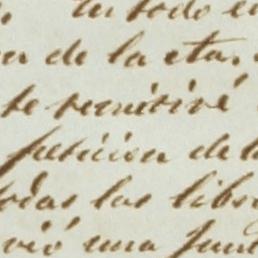 en todo e
de la eta.
te remitiré
peticion de l
todas las liber
vió una Junt